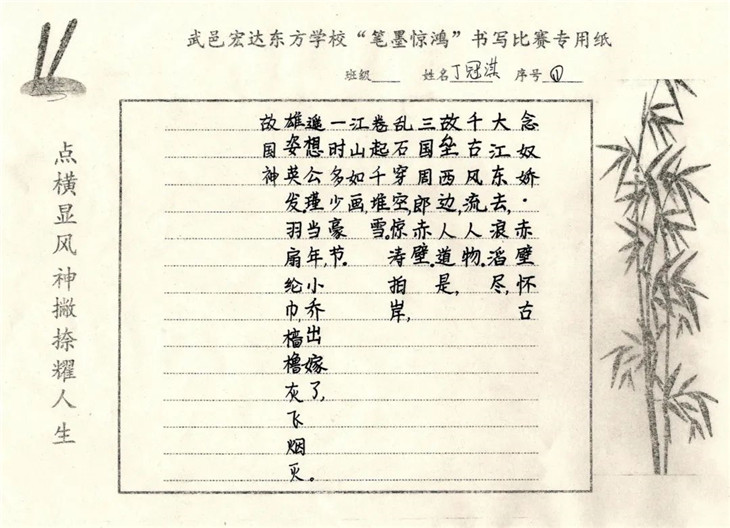 武邑宏达东方学校“笔墨惊鸿”书写比赛专用纸
班级 姓名丁冠淇 序号①
念奴娇·赤壁怀古
大江东去,浪滔尽,
千古风流人物。
故垒西边,人道是,
三国周郎赤壁。
乱石穿空,惊涛拍岸,
卷起千堆雪。
江山如画,
一时多少豪节。
遥想公瑾当年,小乔出嫁了,
雄姿英发。羽扇纶巾,樯橹灰飞烟灭。
故国神
点横显风神撇捺耀人生